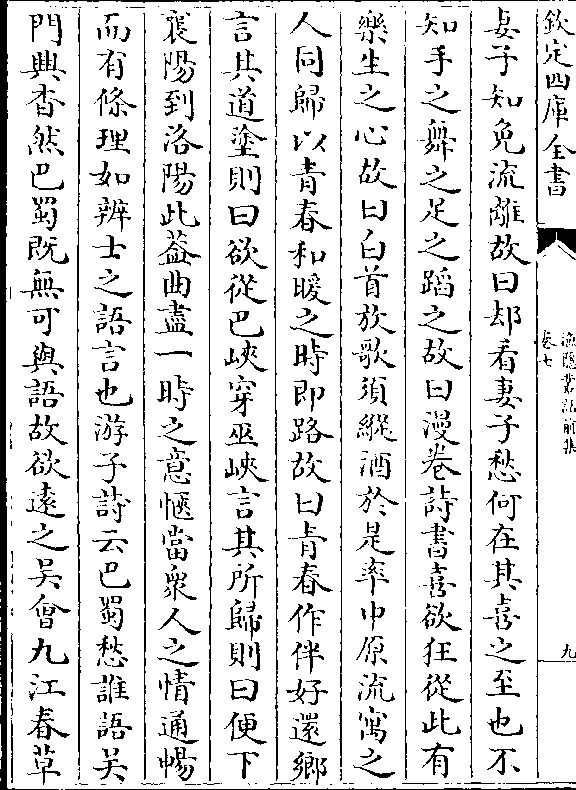 欽定四庫全書
漁隱叢話前集
卷七
九
妻子知免流離故曰却看妻子愁何在其喜之至也不
知手之舞之足之蹈之故曰漫卷詩書喜欲狂從此有
樂生之心故曰白首放歌須縱酒於是率中原流寓之
人同歸以青春和暖之時即路故曰青春作伴好還鄉
言其道塗則曰欲從巴峽穿巫峽言其所歸則曰便下
襄陽到洛陽此葢曲盡一時之意愜當衆人之情通暢
而有條理如辨士之語言也游子詩云巴蜀愁誰語吴
門興杳然巴蜀既無可與語故欲逺之吴會九江春草